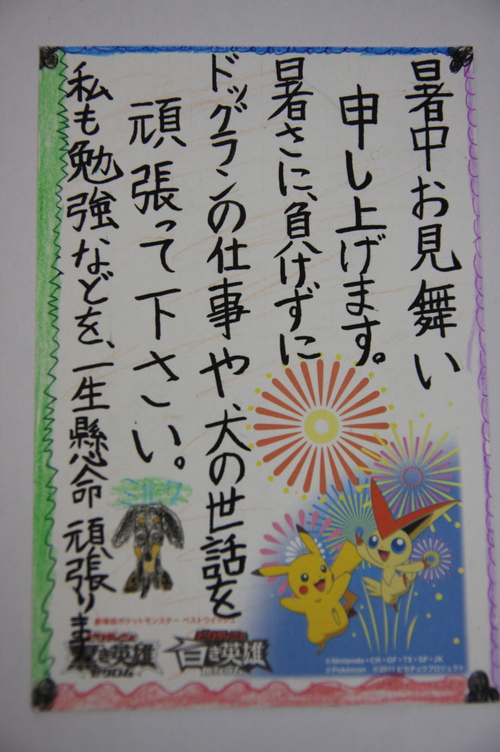 暑中お見舞い
申し上げます。
暑さに、負けずに
ドッグランの仕事や、犬の世話を
頑張って下さい。
私も勉強などを、一生懸命頑張ります
劇場版ポケットモンスター ベストウイッシュ
英雄
白き英雄
©Nintendo・CR・GF・TX・SP・JK
©Pokémon ©2011 ピカチュウプロジェクト